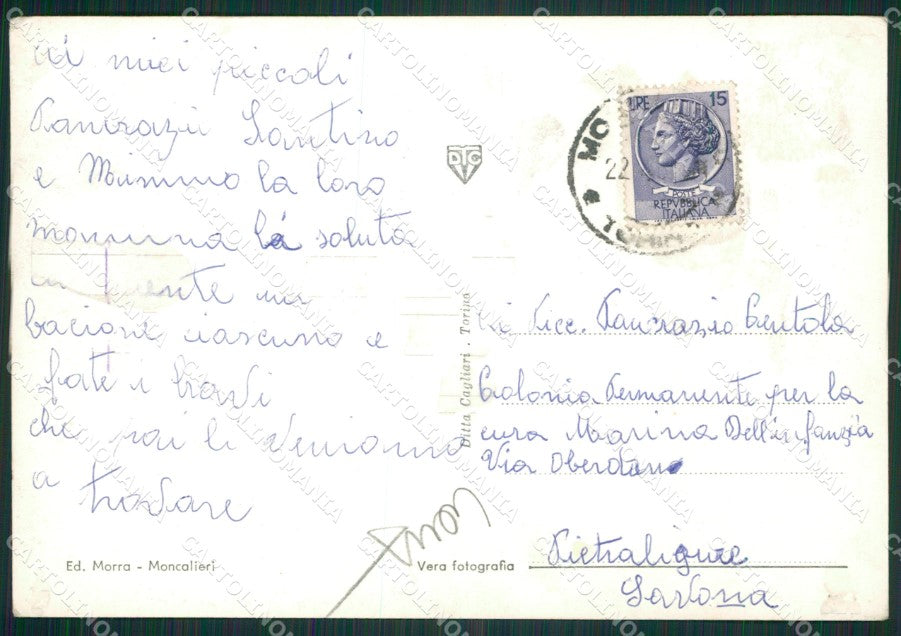 ai miei piccoli
Pancrazio Santino
e Mimmo la loro
mamma là saluta
un bacione ciascuno e
fate i bravi
che poi li veniamo
a trovare
DTC
LIRE 15
POSTE
REPVBBLICA
ITALIANA
MO
22
TORIN
Ditta Cagliari . Torino
Pancrazio Pentola
Colonia Permanente per la
cura Marina Dell'infanzia
Via Oberdan
Pietraligure
Savona
Ed. Morra - Moncalieri
Vera fotografia